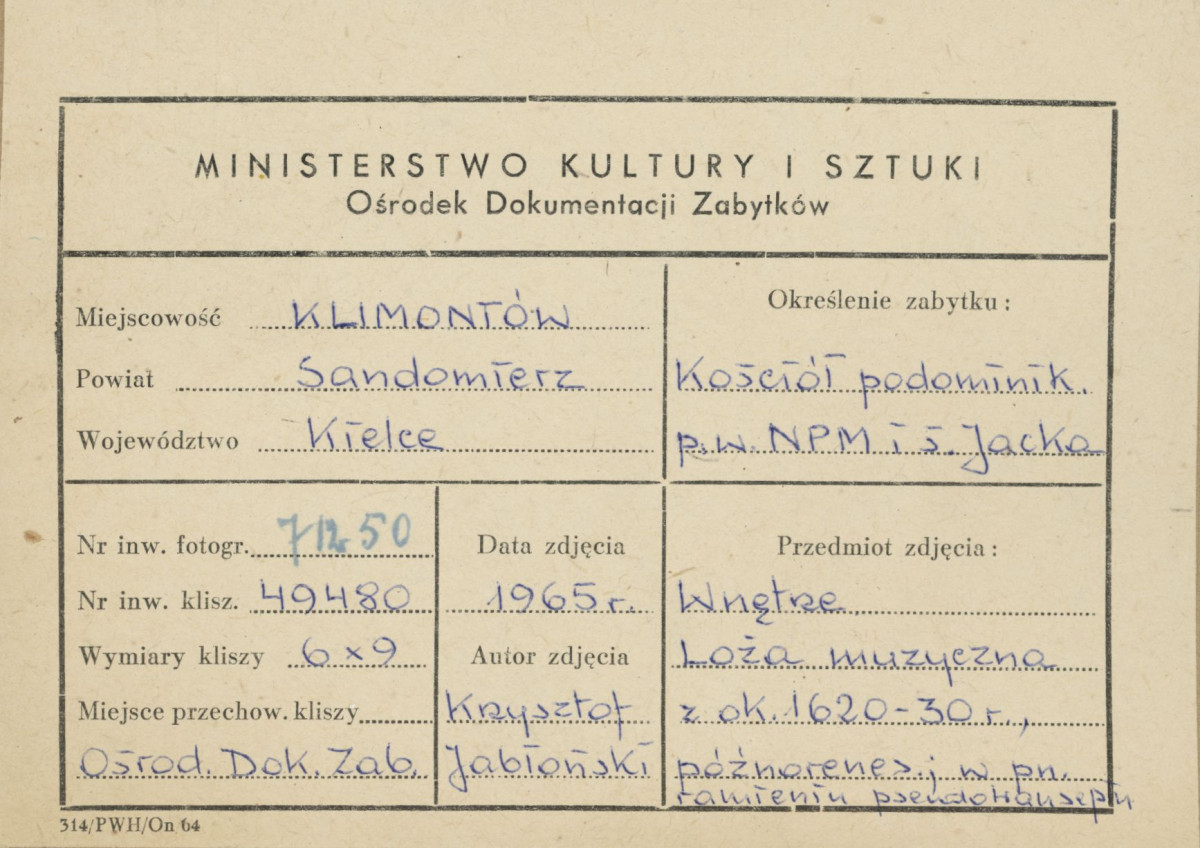 MINISTERSTWO KULTURY I SZTUKI
Ośrodek Dokumentacji Zabytków
Miejscowość KLIMONTÓW
Powiat Sandomierz
Województwo Kielce
Określenie zabytku:
Kościół podominik.
p.w. NPM i ś. Jacka
Nr inw. fotogr. 71250
Nr inw. klisz. 49480
Wymiary kliszy 6x9
Miejsce przechow. kliszy
Ośrod. Dok. Zab.
Data zdjęcia
1965 r.
Autor zdjęcia
Krzysztof
Jabłoński
Przedmiot zdjęcia:
Wnętrze
Loża muzyczna
z ok. 1620-30 r.,
późnorenes.; w pn.
ramieniu pseudotranseptu
314/PWH/On 64